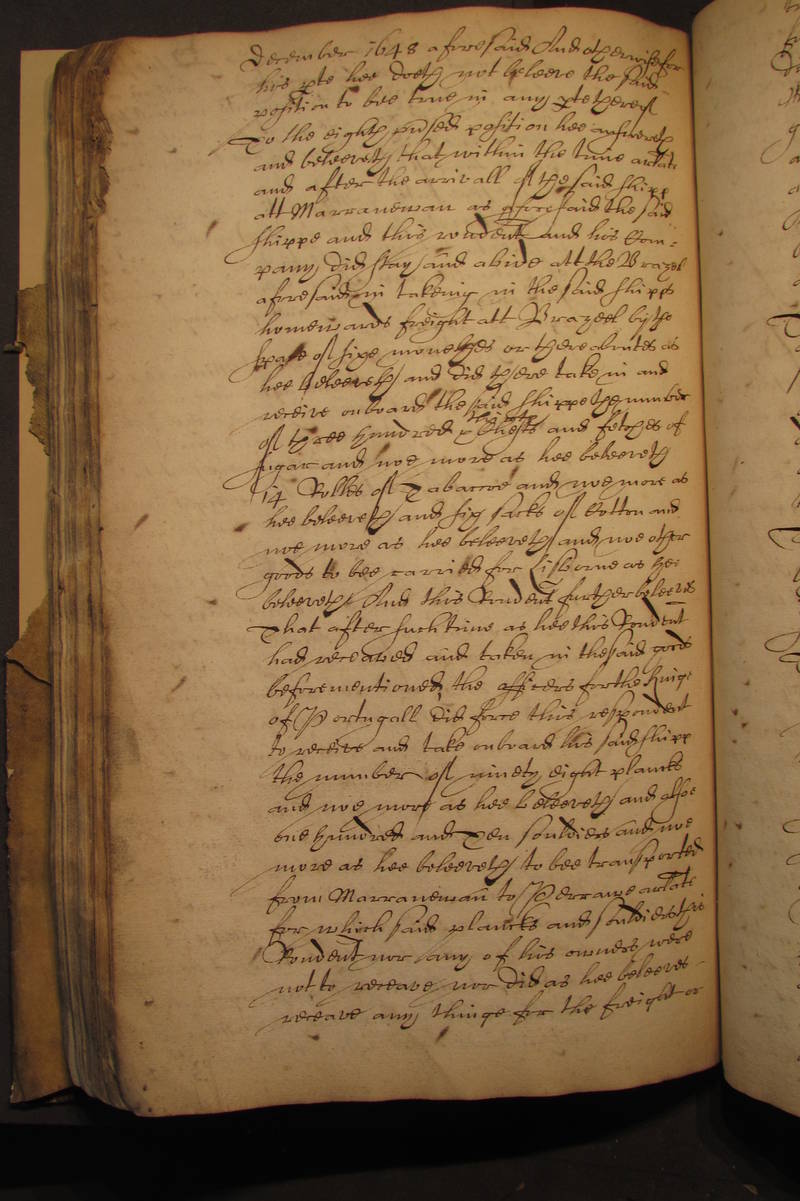 December 1648 aforesaid And otherwise for
his pte hee doeth not beleeve the said
position to bee true in any pte thereof
To the eighth position hee answereth
and beleeveth that within the time arlate
and after the arrivall of the said shipp
att Marranewan as aforesaid the said
shippe and this rondent and his Com=
pany did stay and abide att the Brazeel
aforesaid in takeing in the said shipps
homewards freight att Brazeel by the
space of sixe monethes or thereaboutes as
hee beleeveth and did there take in and
receive onboard the said shippe the number
of three hundred Chests and fetches of
sugar and noe more as hee beleeveth
14 Rolles of Tabaccoe and noe more as
hee beleeveth and six sacks of Cotton and
noe more as hee beleeveth and noe other
goods to bee carried for Lisborne as hee
beleeveth And this Rondent further beleeves
That after such time as hee this Rondent
had receaved and taken in the said goods
beforementioned, the officers for the Kinge
of Portugall did force this respondent
to receive and take onboard his said shipp
the number of ninety eight plancks
and noe more as hee beleeveth and alsoe
one hundred and Ten souldiers and noe
more as hee beleeveth to bee transported
from Marranewan to arlate
for which said plancks and souldiers this
Rondent nor any of his owners were
not to receave nor did as hee beleeves
receave any thinge for the freight or